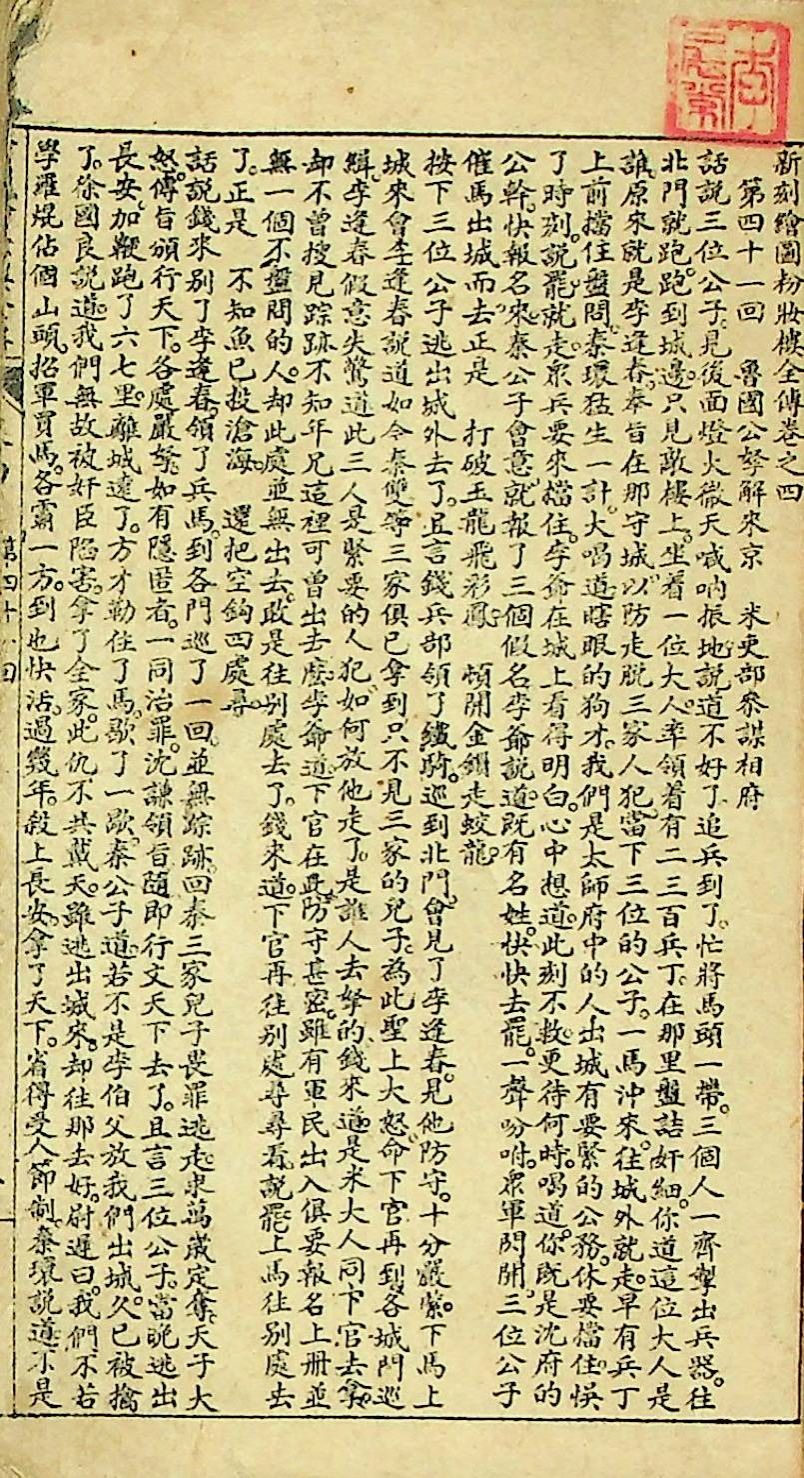 新刻繪圖粉妝樓全傳卷之四
第四十一回 魯國公拏解來京 米吏部參謀相府
話說三位公子。見後面燈火微天喊吶振地。說道不好了。追兵到了。忙將馬頭一帶。三個人一齊掣出兵器。往
北門就跑。跑到城邊。只見敵樓上。坐着一位大人。率領着有二三百兵丁。在那里盤詰奸細。你道這位大人是
誰。原來就是李逢春。奉旨在那守城。以防走脫三家人犯。當下三位的公子。一馬沖來。往城外就走。早有兵丁
上前擋住盤問。秦環猛生一計。大喝道。瞎眼的狗才。我們是太師府中的人出城有要緊的公務。休要擋住。悞
了時刻。說罷。就走。衆兵要來擋住。李爺在城上看得明白。心中想道。此刻不救。更待何時。喝道。你既是沈府的
公幹。快報名來。秦公子會意。就報了三個假名李爺說道。既有名姓。快快去罷。一聲吩咐。衆軍閃開。三位公子
催馬出城而去。正是 打破玉龍飛彩鳳。 頓開金鎖走蛟龍。
按下三位公子逃出城外去了。且言錢兵部領了纖騎。巡到北門。會見了李逢春。見他防守。十分嚴緊。下馬上
城來會李逢春說道如今秦雙等三家俱已拿到只不見三家的兒子。為此聖上大怒。命下官再到各城門巡
緝。李逢春假意失驚道此三人是緊要的人犯。如何放他走了。是誰人去拏的。錢來道。是米大人同卞官去拿。
却不曾搜見踪跡不知年兄這裡可曾出去麽。李爺道。下官在此防守甚密。雖有軍民出入俱要報名上冊並
無一個不盤問的人。却此處並無出去。政是往別處去了。錢來道。下官再往别處尋尋看。說罷。上馬往别處去
了。正是 不知魚已投滄海。 還把空鈎四處尋。
話說錢來别了李逢春。領了兵馬。到各門巡了一回。並無踪跡。回秦三家兒子畏罪逃走求萬歲定奪。天子大
怒。傳旨頒行天下。各處嚴拏。如有隱匿者。一同治罪。沈謙領旨隨即行文天下去了。且言三位公子。當晚逃出
長安。加鞭跑了六七里。離城遠了。方才勒住了馬。歇了一歇。秦公子道。若不是李伯父放我們出城。久已被擒
了。徐國良說道。我們無故被奸臣陷害。拿了全家。此仇不共戴天。雖逃出城來。却往那去好。尉遲曰。我們不若
學羅焜佔個山頭。招軍買馬。各霸一方。到也快活。過幾年。殺上長安。拿了天下。省得受人節制。秦環說道。不是
第四十一回